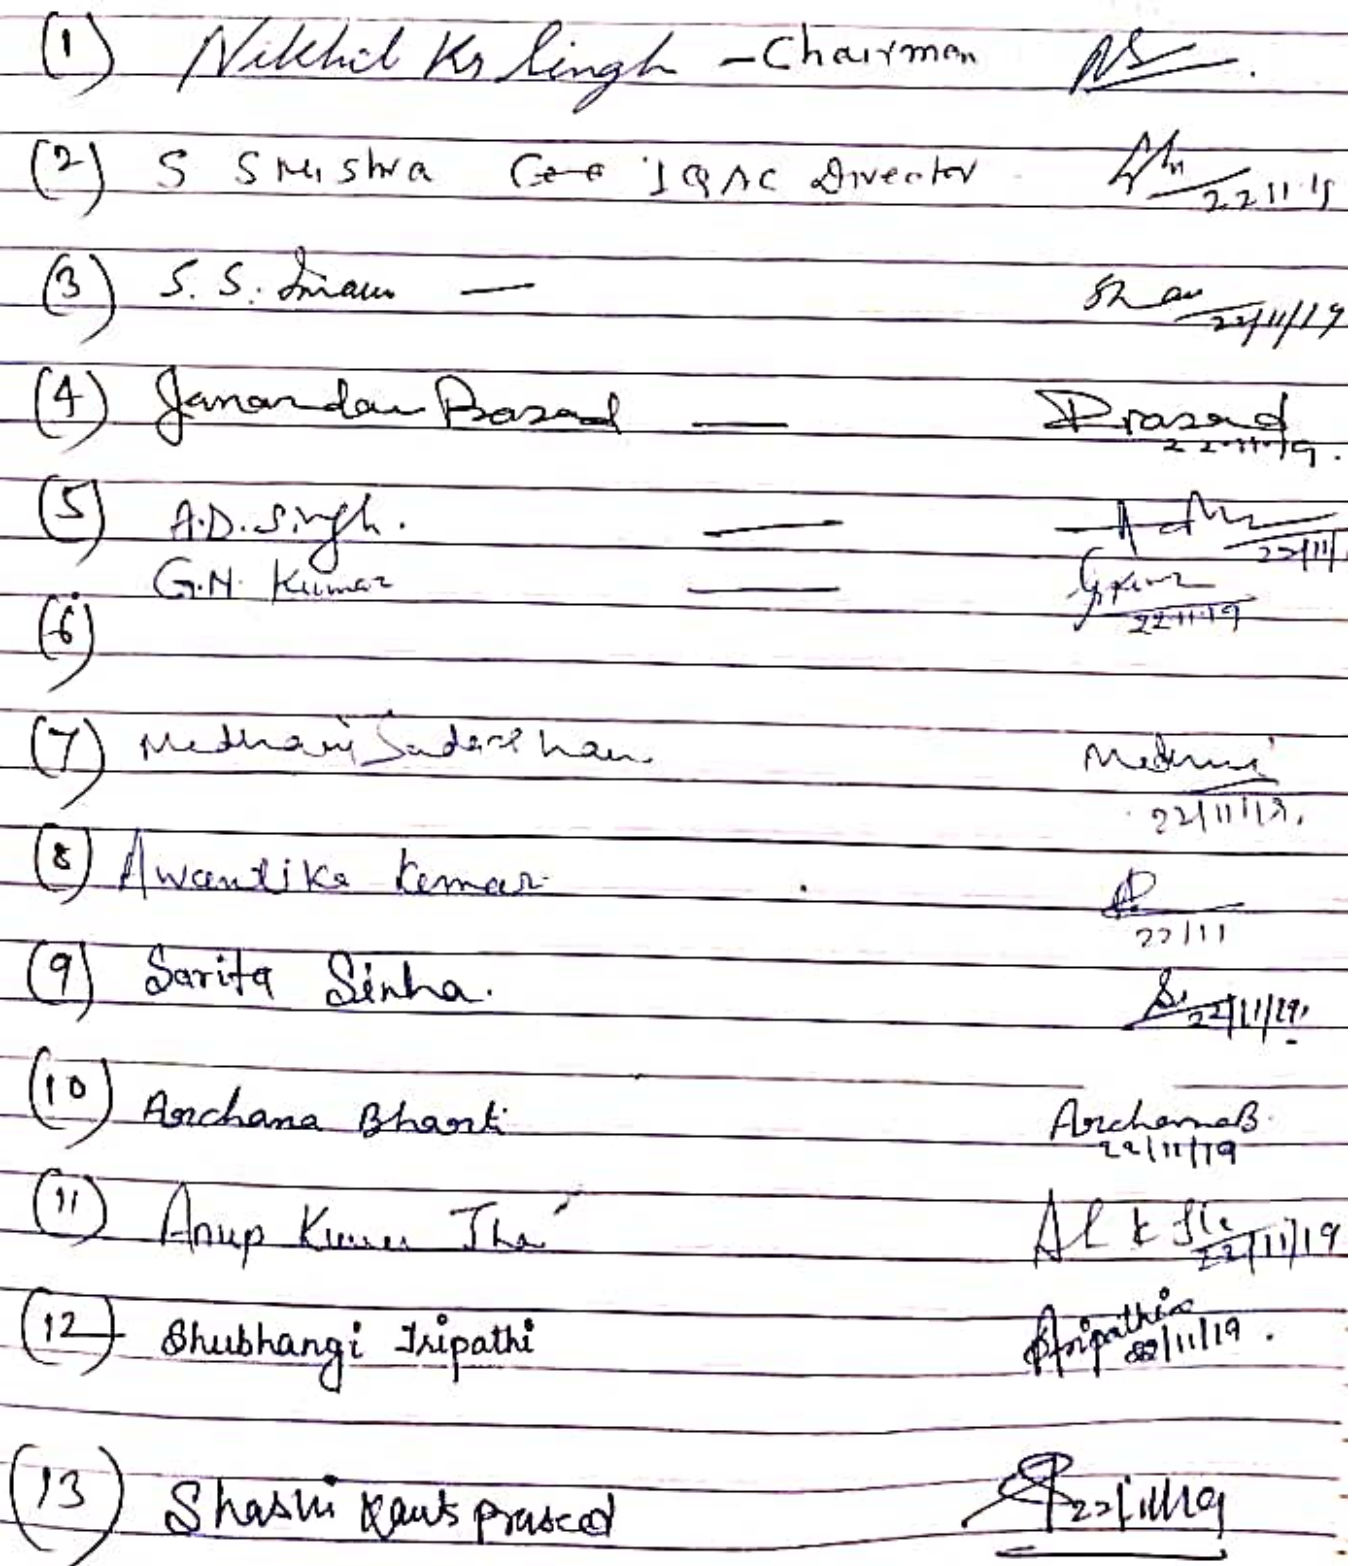 (1) Nikhil Kr Singh - Chairman NS
(2) S S Mishra IQAC Director 22.11.19
(3) S. S. — 22/11/19
(4) Janardan Prasad — Prasad
22.11.19.
(5) A.D. Singh. — 22/11/
G.N. Kumar — GKumar
22.11.19
(6)
(7) Medhavi Sudarshan Medhavi
22/11/19.
(8) Awantika Kumar
22/11
(9) Sarita Sinha. S. 22/11/19.
(10) Archana Bharti ArchanaB.
22/11/19
(11) Anup Kumar Jha 22/11/19
(12) Shubhangi Tripathi Stripathi
22/11/19.
(13) Shashi Kant Prasad 22/11/19